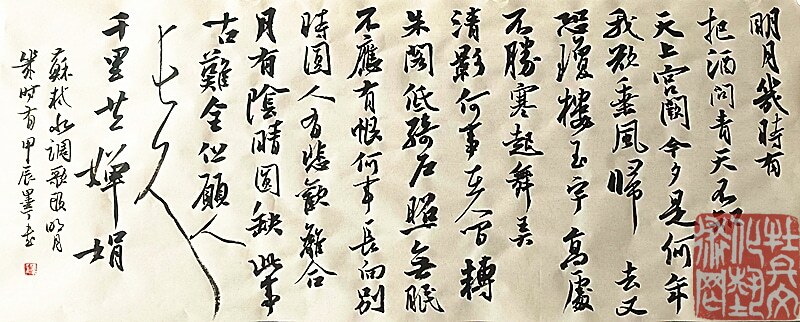 明月幾時有
把酒問青天不知
天上宮闕今夕是何年
我欲乘風歸去又
恐瓊樓玉宇高處
不勝寒起舞弄
清影何事在人間轉
朱閣低綺戶照無眠
不應有恨何事長向別
時圓人有悲歡離合
月有陰晴圓缺此事
古難全但願人
長久
千里共嬋娟
蘇軾水調歌頭明月
幾時有甲辰